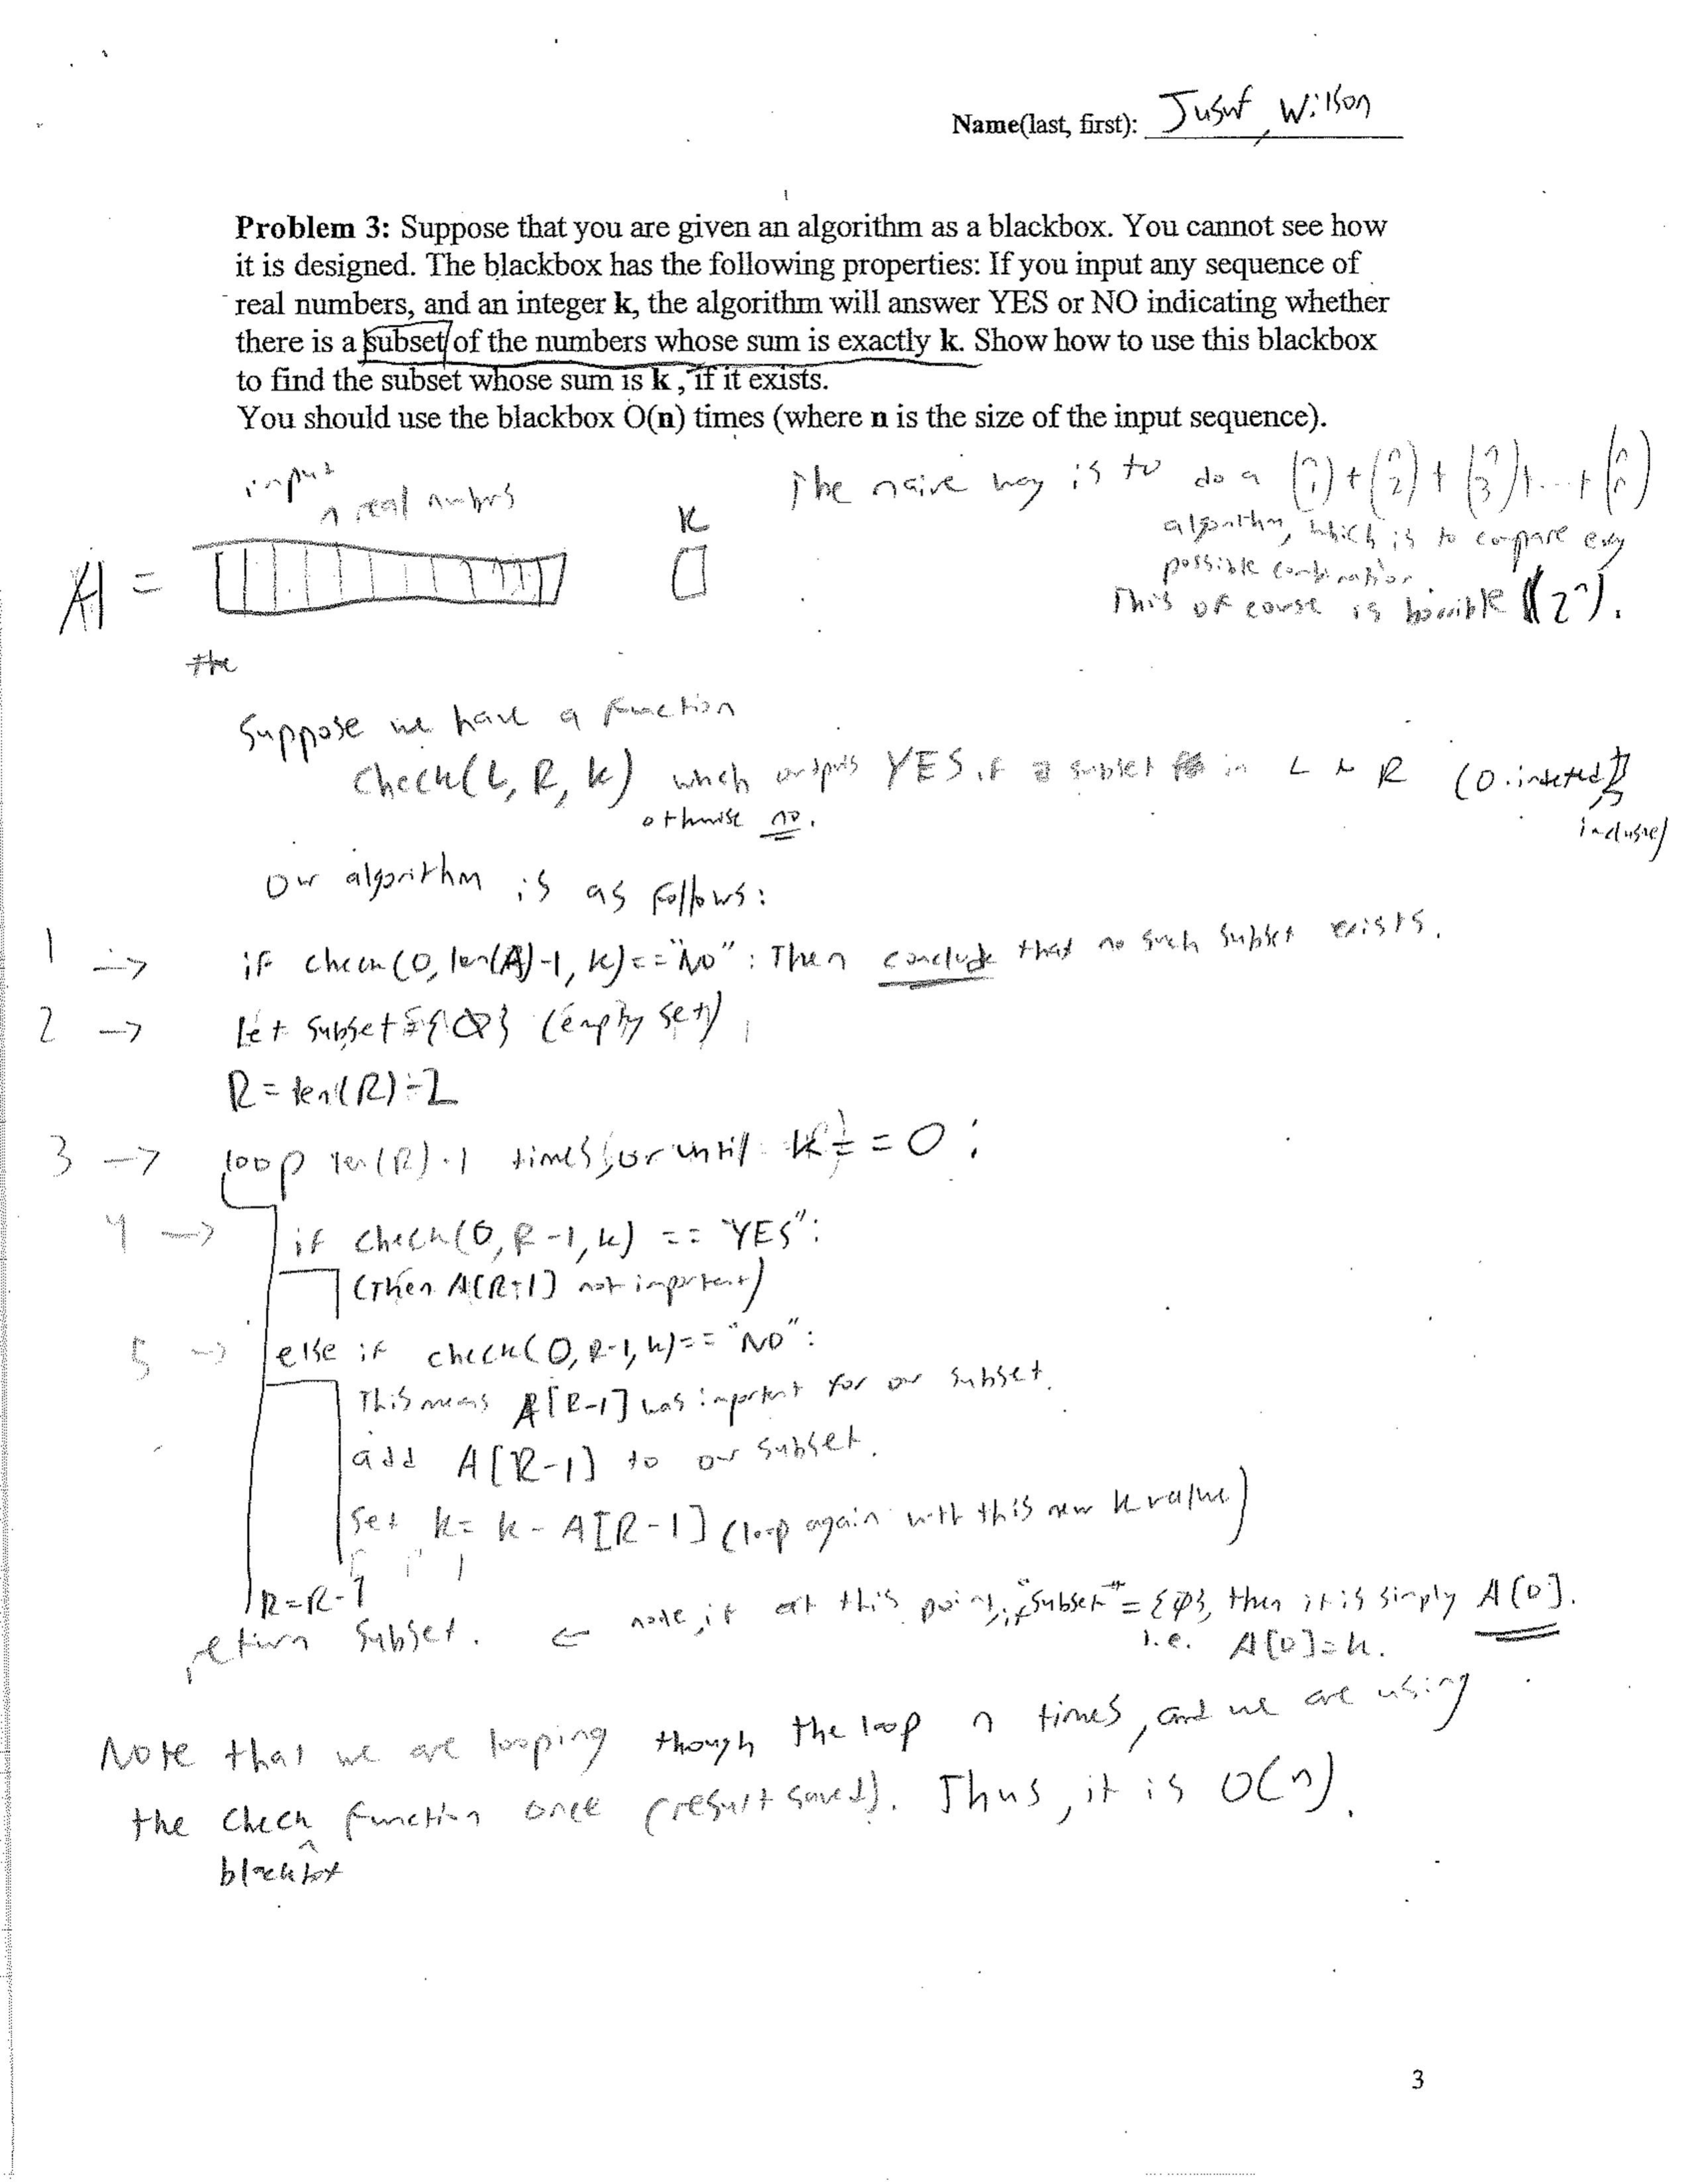 Name(last, first): Jusuf, Wilson
Problem 3: Suppose that you are given an algorithm as a blackbox. You cannot see how
it is designed. The blackbox has the following properties: If you input any sequence of
real numbers, and an integer k, the algorithm will answer YES or NO indicating whether
there is a subset of the numbers whose sum is exactly k. Show how to use this blackbox
to find the subset whose sum is k, if it exists.
You should use the blackbox O(n) times (where n is the size of the input sequence).
input
n real numbers
K
A =
The naive way is to do a (n 1) + (n 2) + (n 3) + .... + (n n)
algorithm, which is to compare every
possible combination.
This of course is horrible (2^n).
the
Suppose we have a function
Check(L, R, k) which outputs YES if a subset in L to R (0-indexed,
inclusive)
otherwise no.
Our algorithm is as follows:
1 → if check(0, len(A)-1, k) == "NO": Then conclude that no such subset exists.
2 → let subset = {∅} (empty set)
R = len(R)-2
3 → loop len(R)-1 times, or until k == 0:
4 → if check(0, R-1, k) == "YES":
(Then A[R+1] not important)
5 → else if check(0, R-1, k) == "NO":
This means A[R-1] was important for our subset.
add A[R-1] to our subset.
Set k = k - A[R-1] (loop again with this new k value)
R = R-1
return subset. ← note, if at this point, if "subset" = {∅}, then it is simply A[0].
i.e. A[0]=k.
Note that we are looping though the loop n times, and we are using
the check function once (result saved). Thus, it is O(n).
blackbox
3